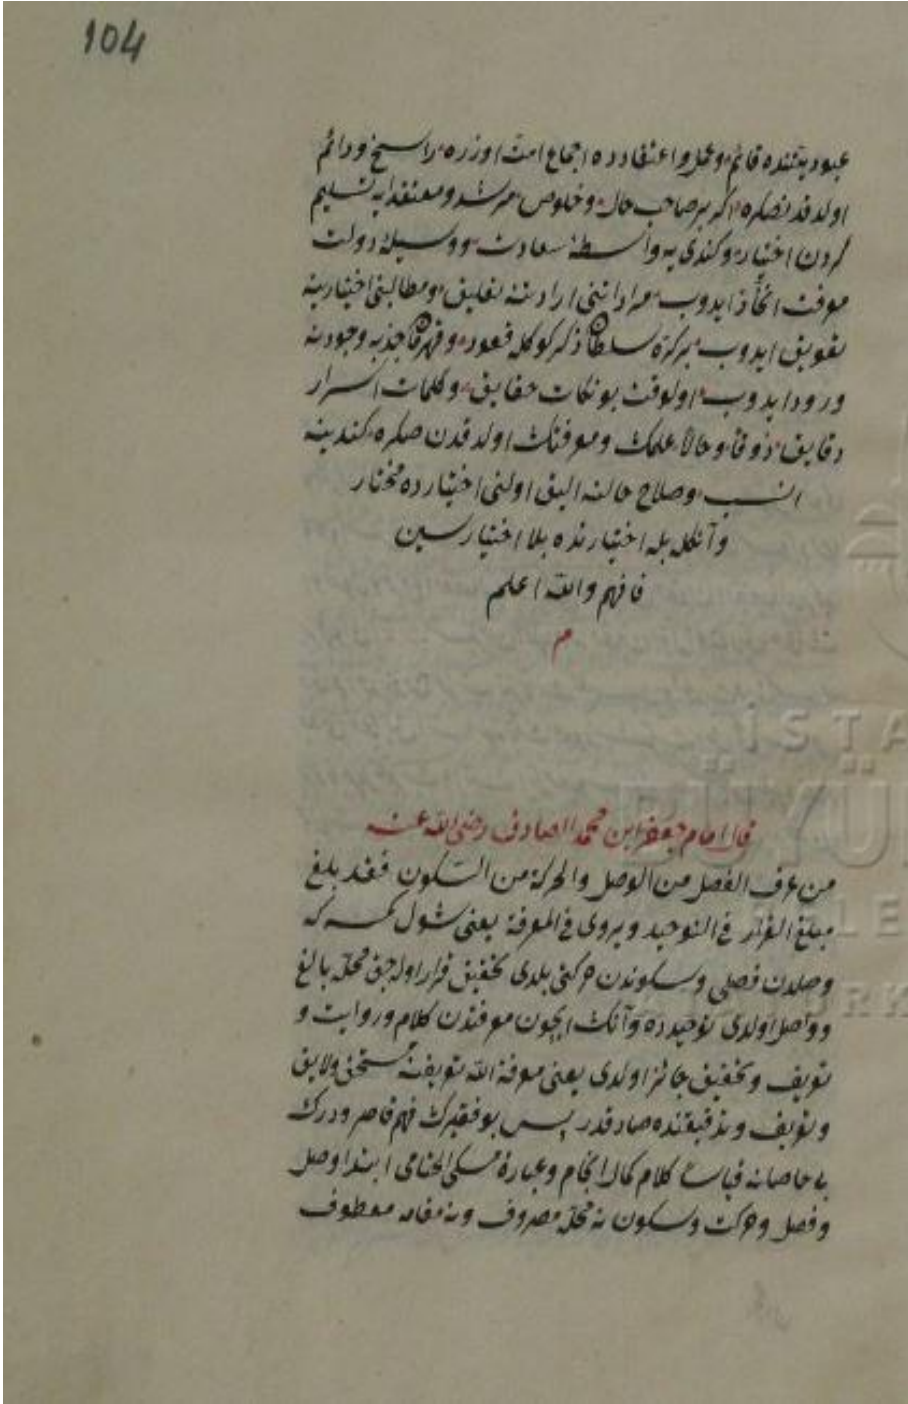 104
عبوديتنده قائم و عمل و اعتقادده اجماع امت اوزره راسخ و دائم
اولدقدنصكره اكر بر صاحب حال و خلوص مرشد و معتقدايه تسليم
كردن اختيار و كندى يه واسطهٔ سعادت و وسيلهٔ دولت
معرفت اتخاذ ايدوب مراداتنى ارادتنه تعليق و مطالبنى اختيارينه
تفويض ايدوب بركره سلطان ذكر كوكله قعود و قهرمان جذبه وجودينه
ورود ايدوب اولوقت بو نكات حقايق و كلمات اسرار
دقايق ذوقاً و حالاً علمك و معرفتك اولدقدن صكره كندينه
انسب و صلاح حالنه اليق اولنى اختيارده مختار
و آنكله بله اختيارنده بلا اختيارسين
فافهم والله اعلم
م
قال امام جعفر ابن محمد الصادق رضى الله عنه
من عرف الفصل من الوصل والحركة من السكون فقد بلغ
مبلغ القرار فى التوحيد و يروى فى المعرفة يعنى شول كمسه كه
وصلدن فصلى و سكوندن حركتى بلدى تحقيق قرار اوله جق محله بالغ
و واصل اولدى توحيدده و آنك ايچون معرفتدن كلام و روايت و
تعريف و تحقيق جائز اولدى يعنى معرفة الله تعريفنه مستحق ولايق
و تعريف و تدقيقنده صادقدر پس بو فقيرك فهم قاصر و درك
بى حاصلنه قياساً كلام كمال انجام و عبارهٔ مسكى الختامى ابتدا وصل
و فصل و حركت و سكون نه محله مصروف و نه مقامه معطوف
İSTA
BÜYÜ